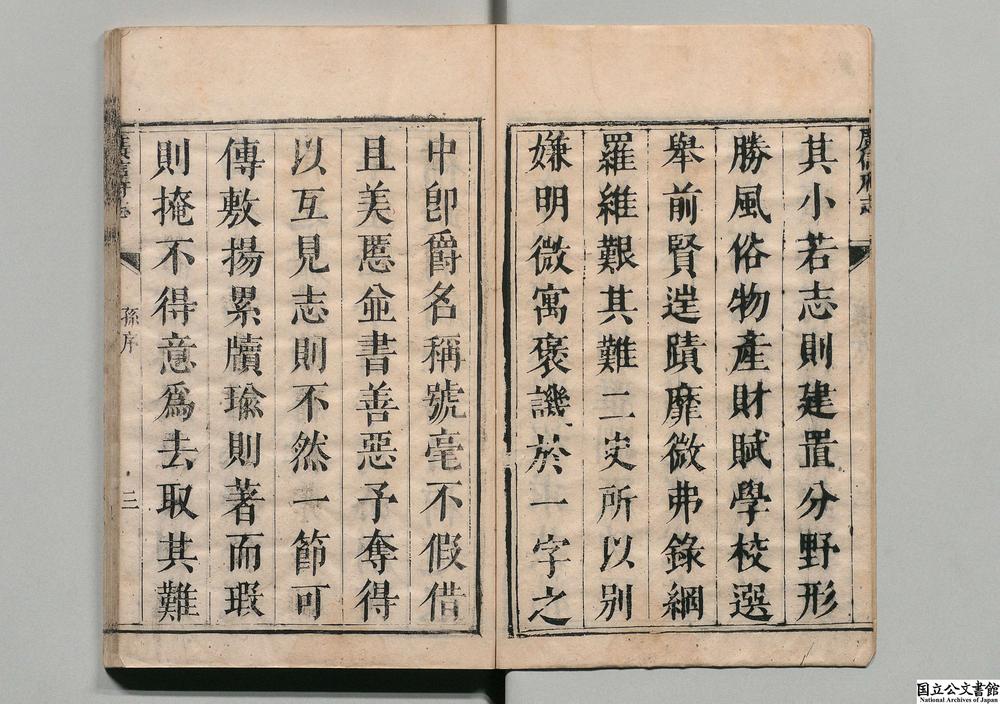 其小若志則建置分野形
勝風俗物產財賦學校選
舉前賢逆蹟靡微弗錄綱
羅維艱其難二史所以別
嫌明微寓褒譏於一字之
中卽爵名稱號毫不假借
且美慝並書善惡予奪得
以互見志則不然一節可
傳敷揚累牘瑜則著而瑕
則掩不得意爲去取其難
廣信府志
孫序
二
国立公文書館
National Archives of Japan